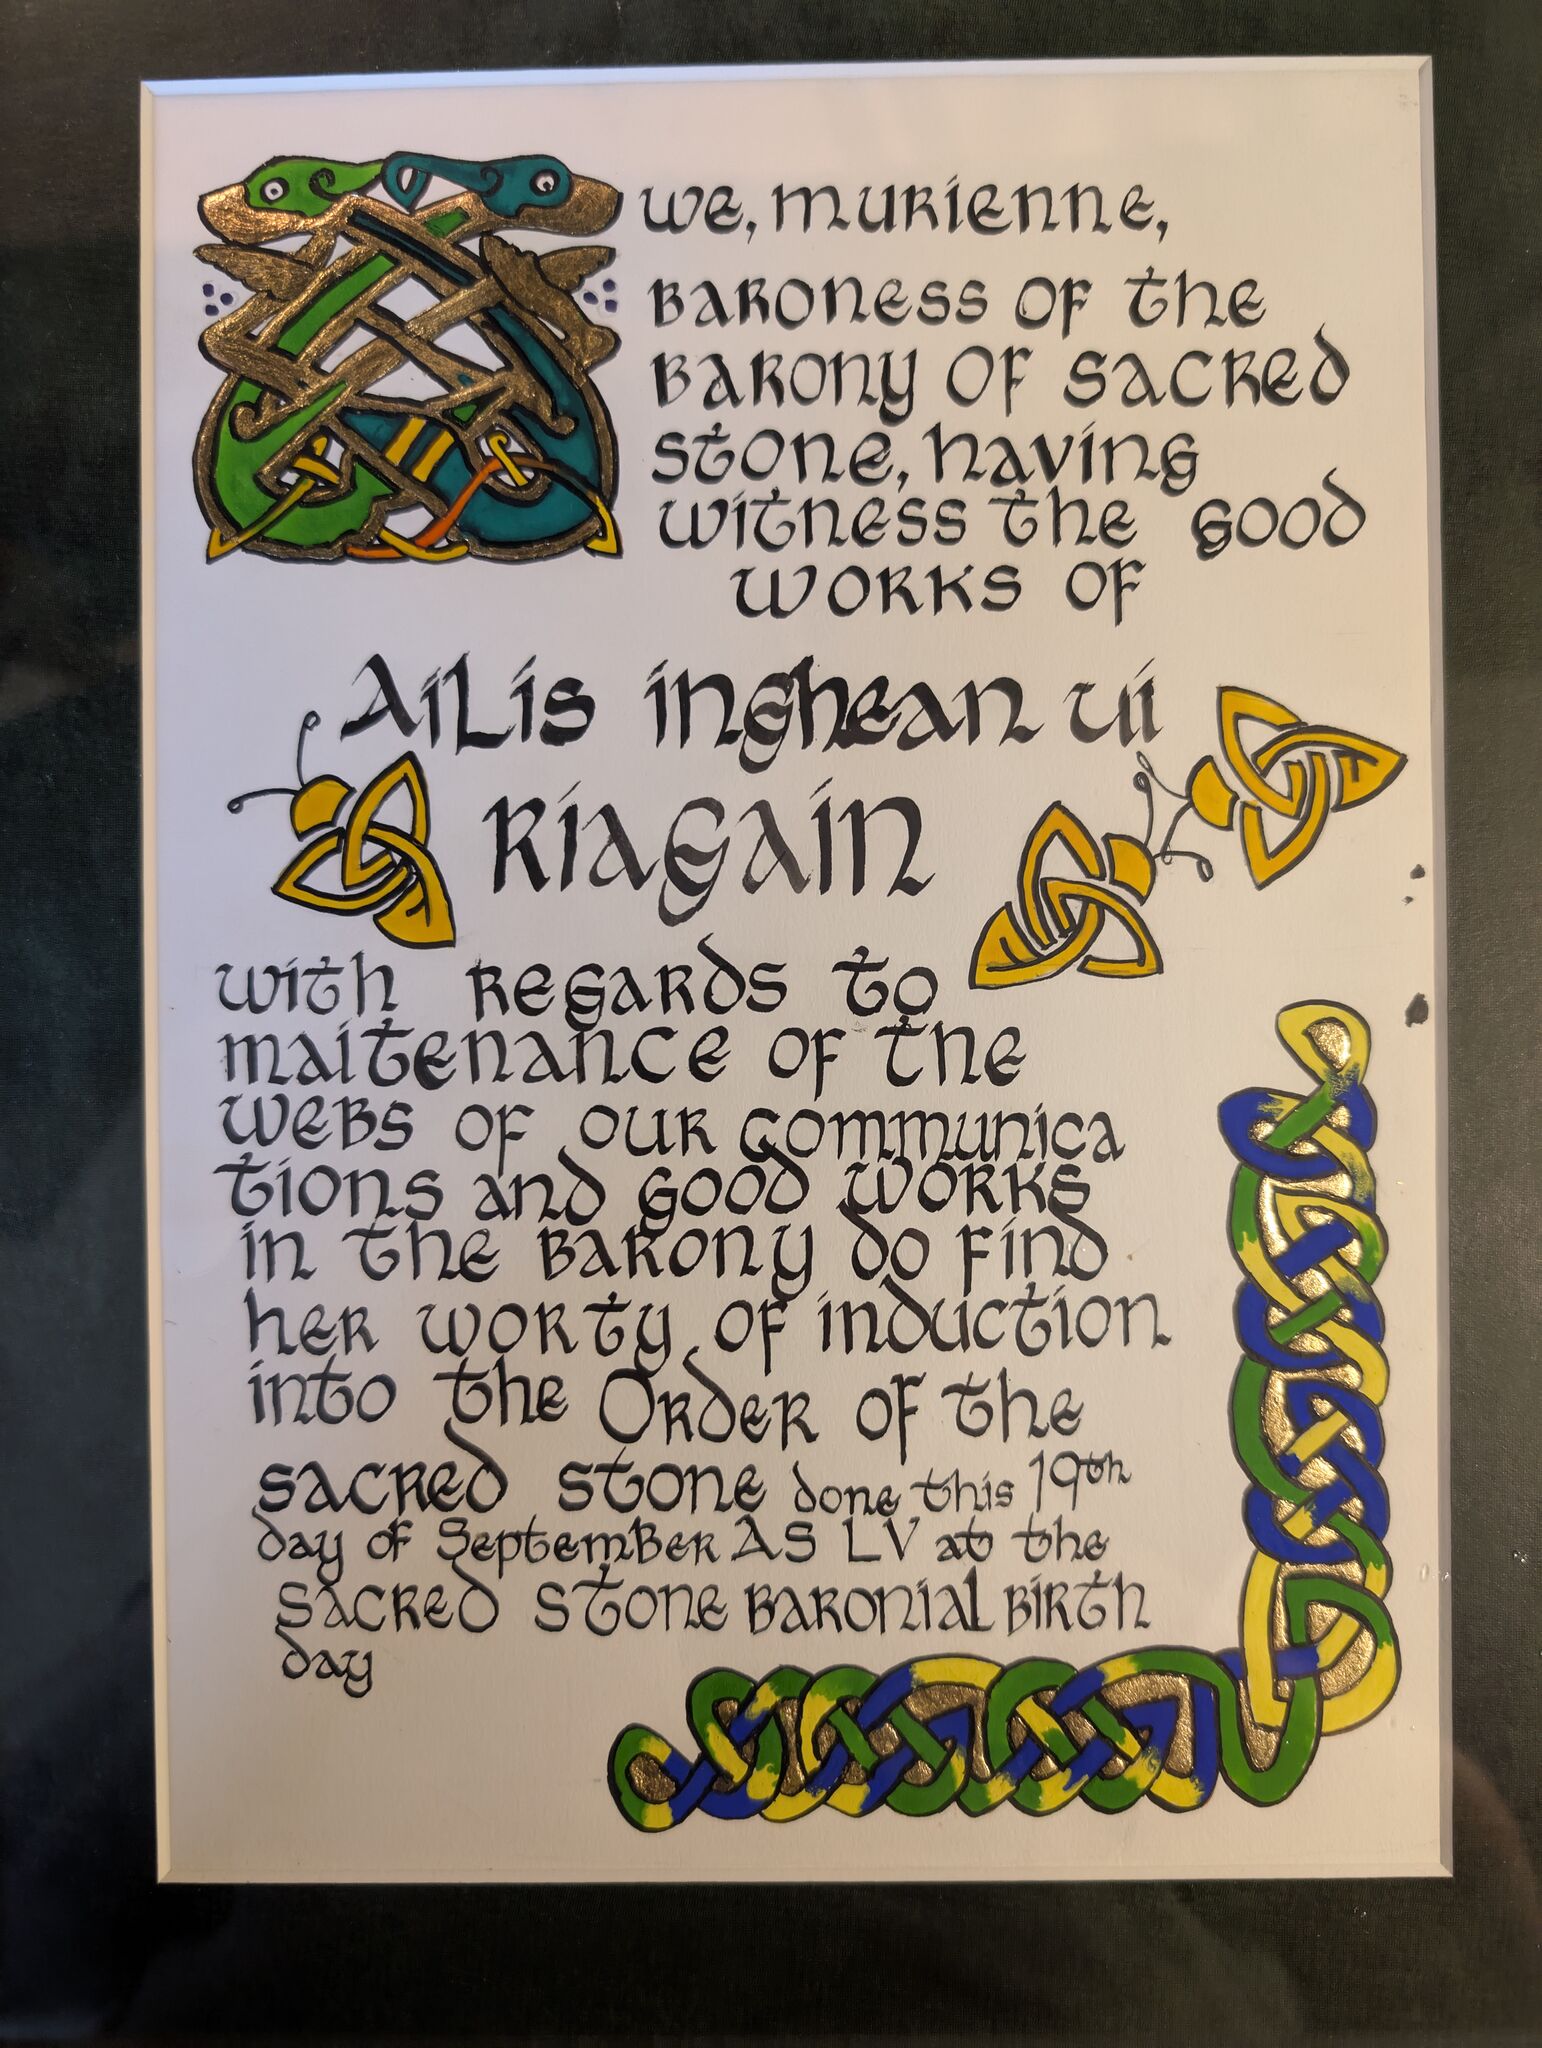 we, murienne,
Baroness of the
Barony of Sacred
Stone, having
witness the good
works of
Ailis inghean ui
Riagain
with regards to
maitenance of the
webs of our communica
tions and good works
in the Barony do find
her worty of induction
into the Order of the
Sacred Stone done this 19th
day of September AS LV at the
Sacred Stone Baronial Birth
day